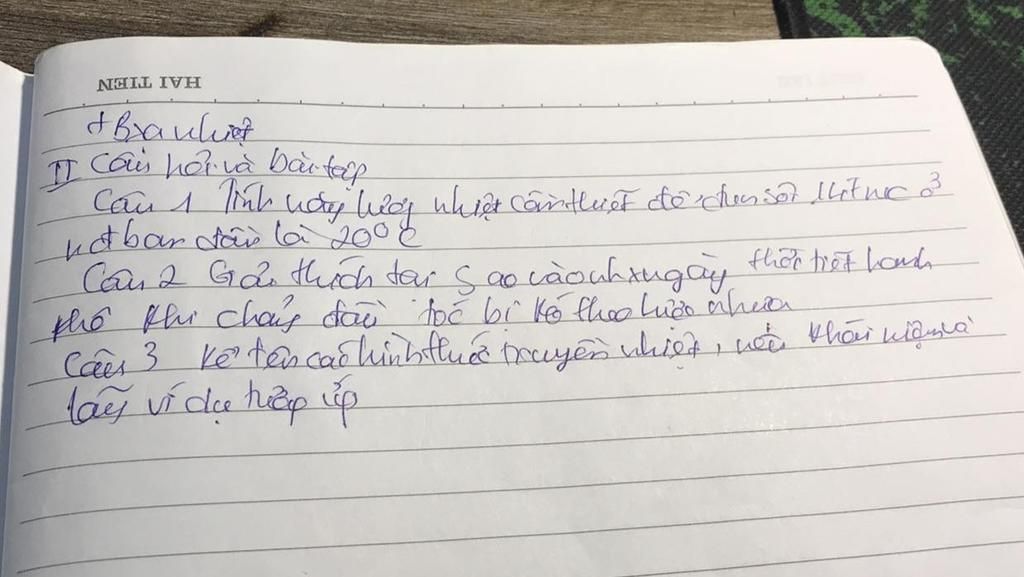 HAI TIEN
+ Bxa nhiệt
II Câu hỏi và bài tập
Câu 1 Tính năng lượng nhiệt cần thiết để đun sôi 1 lít nc ở
nđ ban đầu là 20°C
Câu 2 Giải thích tại sao vào nhx ngày thời tiết hanh
khô khi chải đầu tóc bị kéo theo lược nhựa
Câu 3 Kể tên các hình thức truyền nhiệt, nêu khái niệm và
lấy ví dụ